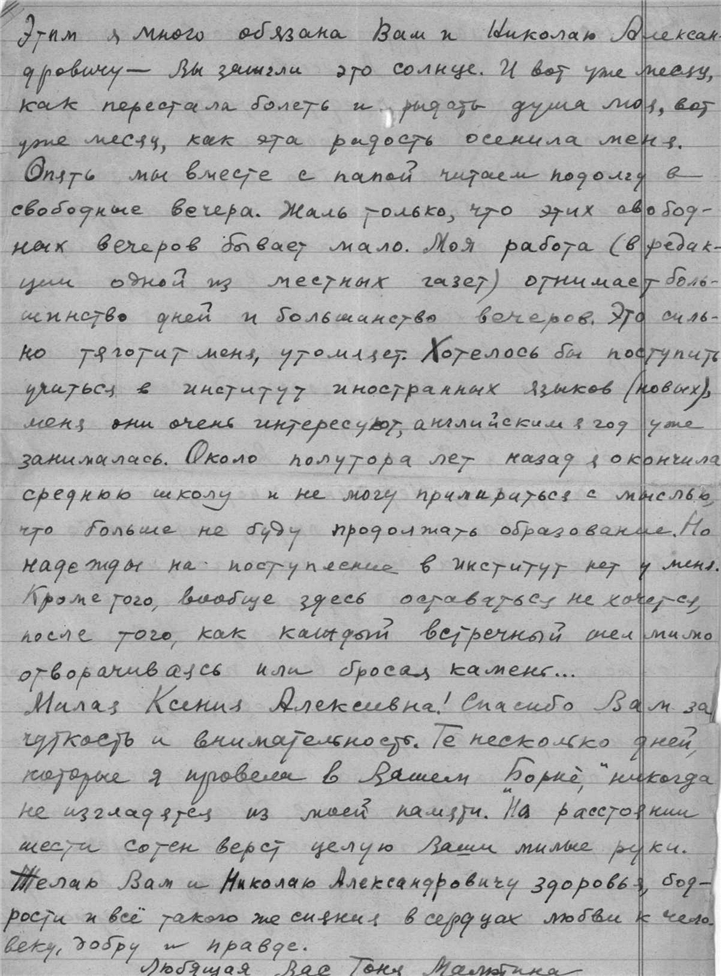 Этим я много обязана Вам и Николаю Алексан-
дровичу — Вы зажгли это солнце. И вот уже месяц,
как перестала болеть и рыдать душа моя, вот
уже месяц, как эта радость осенила меня.
Опять мы вместе с папой читаем подолгу в
свободные вечера. Жаль только, что этих свобод-
ных вечеров бывает мало. Моя работа (в редак-
ции одной из местных газет) отнимает боль-
шинство дней и большинство вечеров. Это силь-
но тяготит меня, утомляет. Хотелось бы поступить
учиться в институт иностранных языков (новых),
меня они очень интересуют, английским я год уже
занималась. Около полутора лет назад я окончила
среднюю школу и не могу примираться с мыслью,
что больше не буду продолжать образование. Но
надежды на поступление в институт нет у меня.
Кроме того, вообще здесь оставаться не хочется,
после того, как каждый встречный шел мимо
отворачиваясь или бросая камень...
Милая Ксения Алексеевна! Спасибо Вам за
чуткость и внимательность. Те несколько дней,
которые я провела в Вашем "Борке", никогда
не изгладятся из моей памяти. На расстоянии
шести сотен верст целую Ваши милые руки.
Желаю Вам и Николаю Александровичу здоровья, бод-
рости и всё такого же сияния в сердцах любви к чело-
веку, добру и правде.
Любящая Вас Тоня Малютина